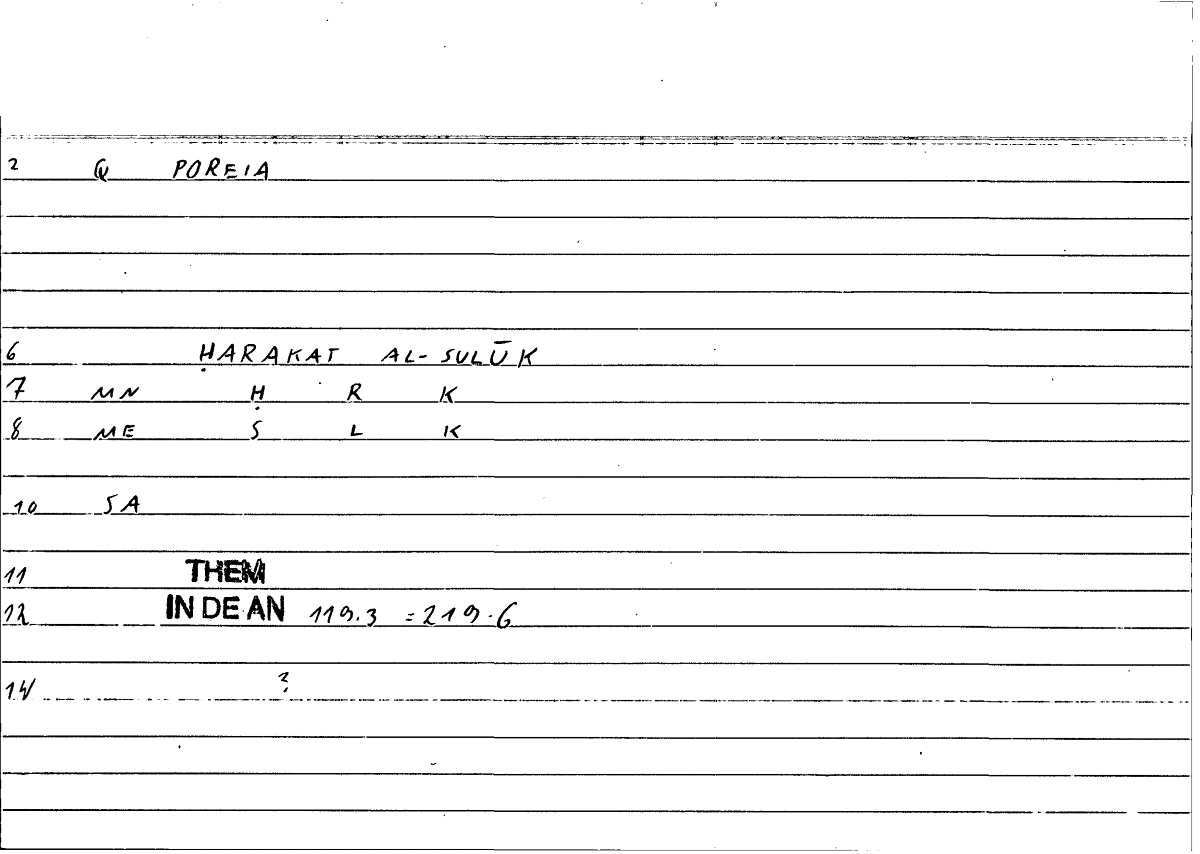 2 Q POREIA
6 ḤARAKAT AL-SULŪK
7 MN Ḥ R K
8 ME S L K
10 SA
11 THEM
12 IN DE AN 119.3 = 219.6
14 ?